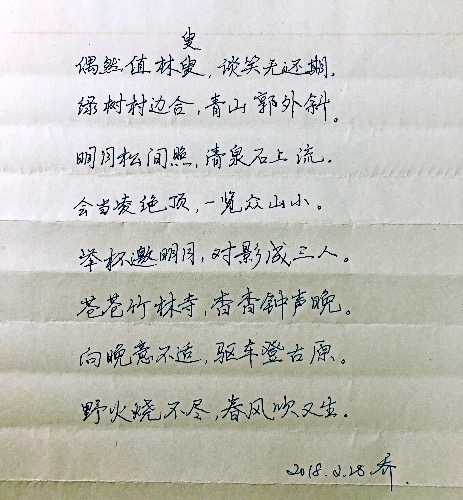 叟
偶然值林叟,谈笑无还期.
绿树村边合,青山郭外斜。
明月松间照,清泉石上流.
会当凌绝顶,一览众山小。
举杯邀明月,对影成三人。
苍苍竹林寺,杳杳钟声晚。
向晚意不适,驱车登古原。
野火烧不尽,春风吹又生.
2018.2.28 乔.